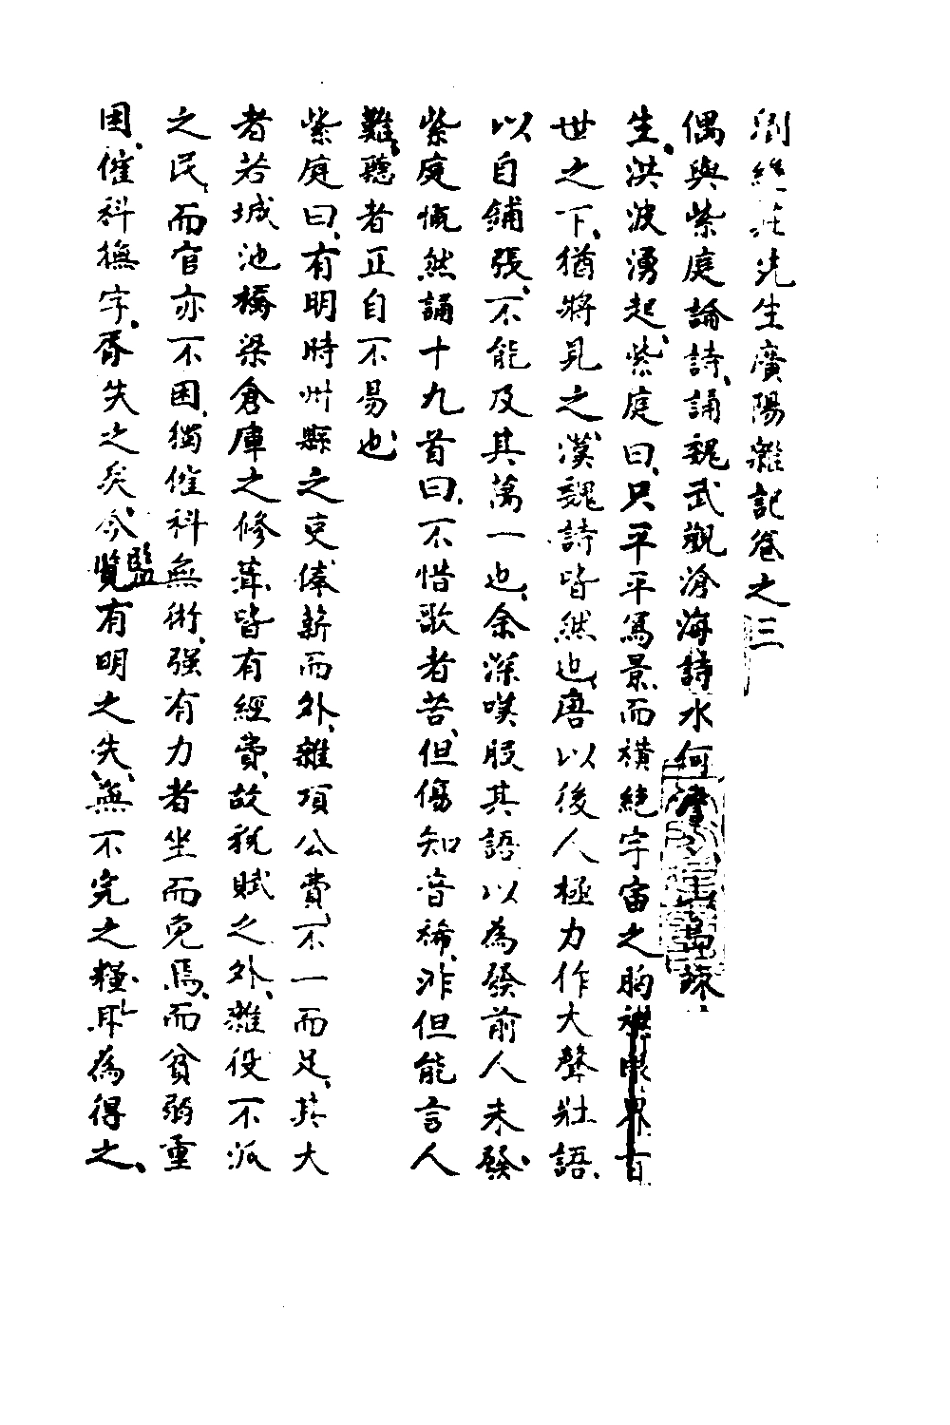 劉繼莊先生廣陽雜記卷之三
偶與紫庭論詩誦魏武觀滄海詩水何澹澹山島竦
生洪波湧起紫庭曰只平平寫景而橫絕宇宙之胸襟眼界百
世之下猶將見之漢魏詩皆然也唐以後人極力作大聲壯語
以自鋪張不能及其萬一也余深嘆服其語以為發前人未發
紫庭慨然誦十九首曰不惜歌者苦但傷知音稀非但能言人
難聽者正自不易也
紫庭曰有明時州縣之吏俸薪而外雜項公費不一而足其大
者若城池橋梁倉庫之修葺皆有經費故税賦之外雜役不派
之民而官亦不困獨催科無術强有力者坐而免焉而貧弱重
困催科撫字胥失之矣今監覽有明之失無不完之糧耳為得之